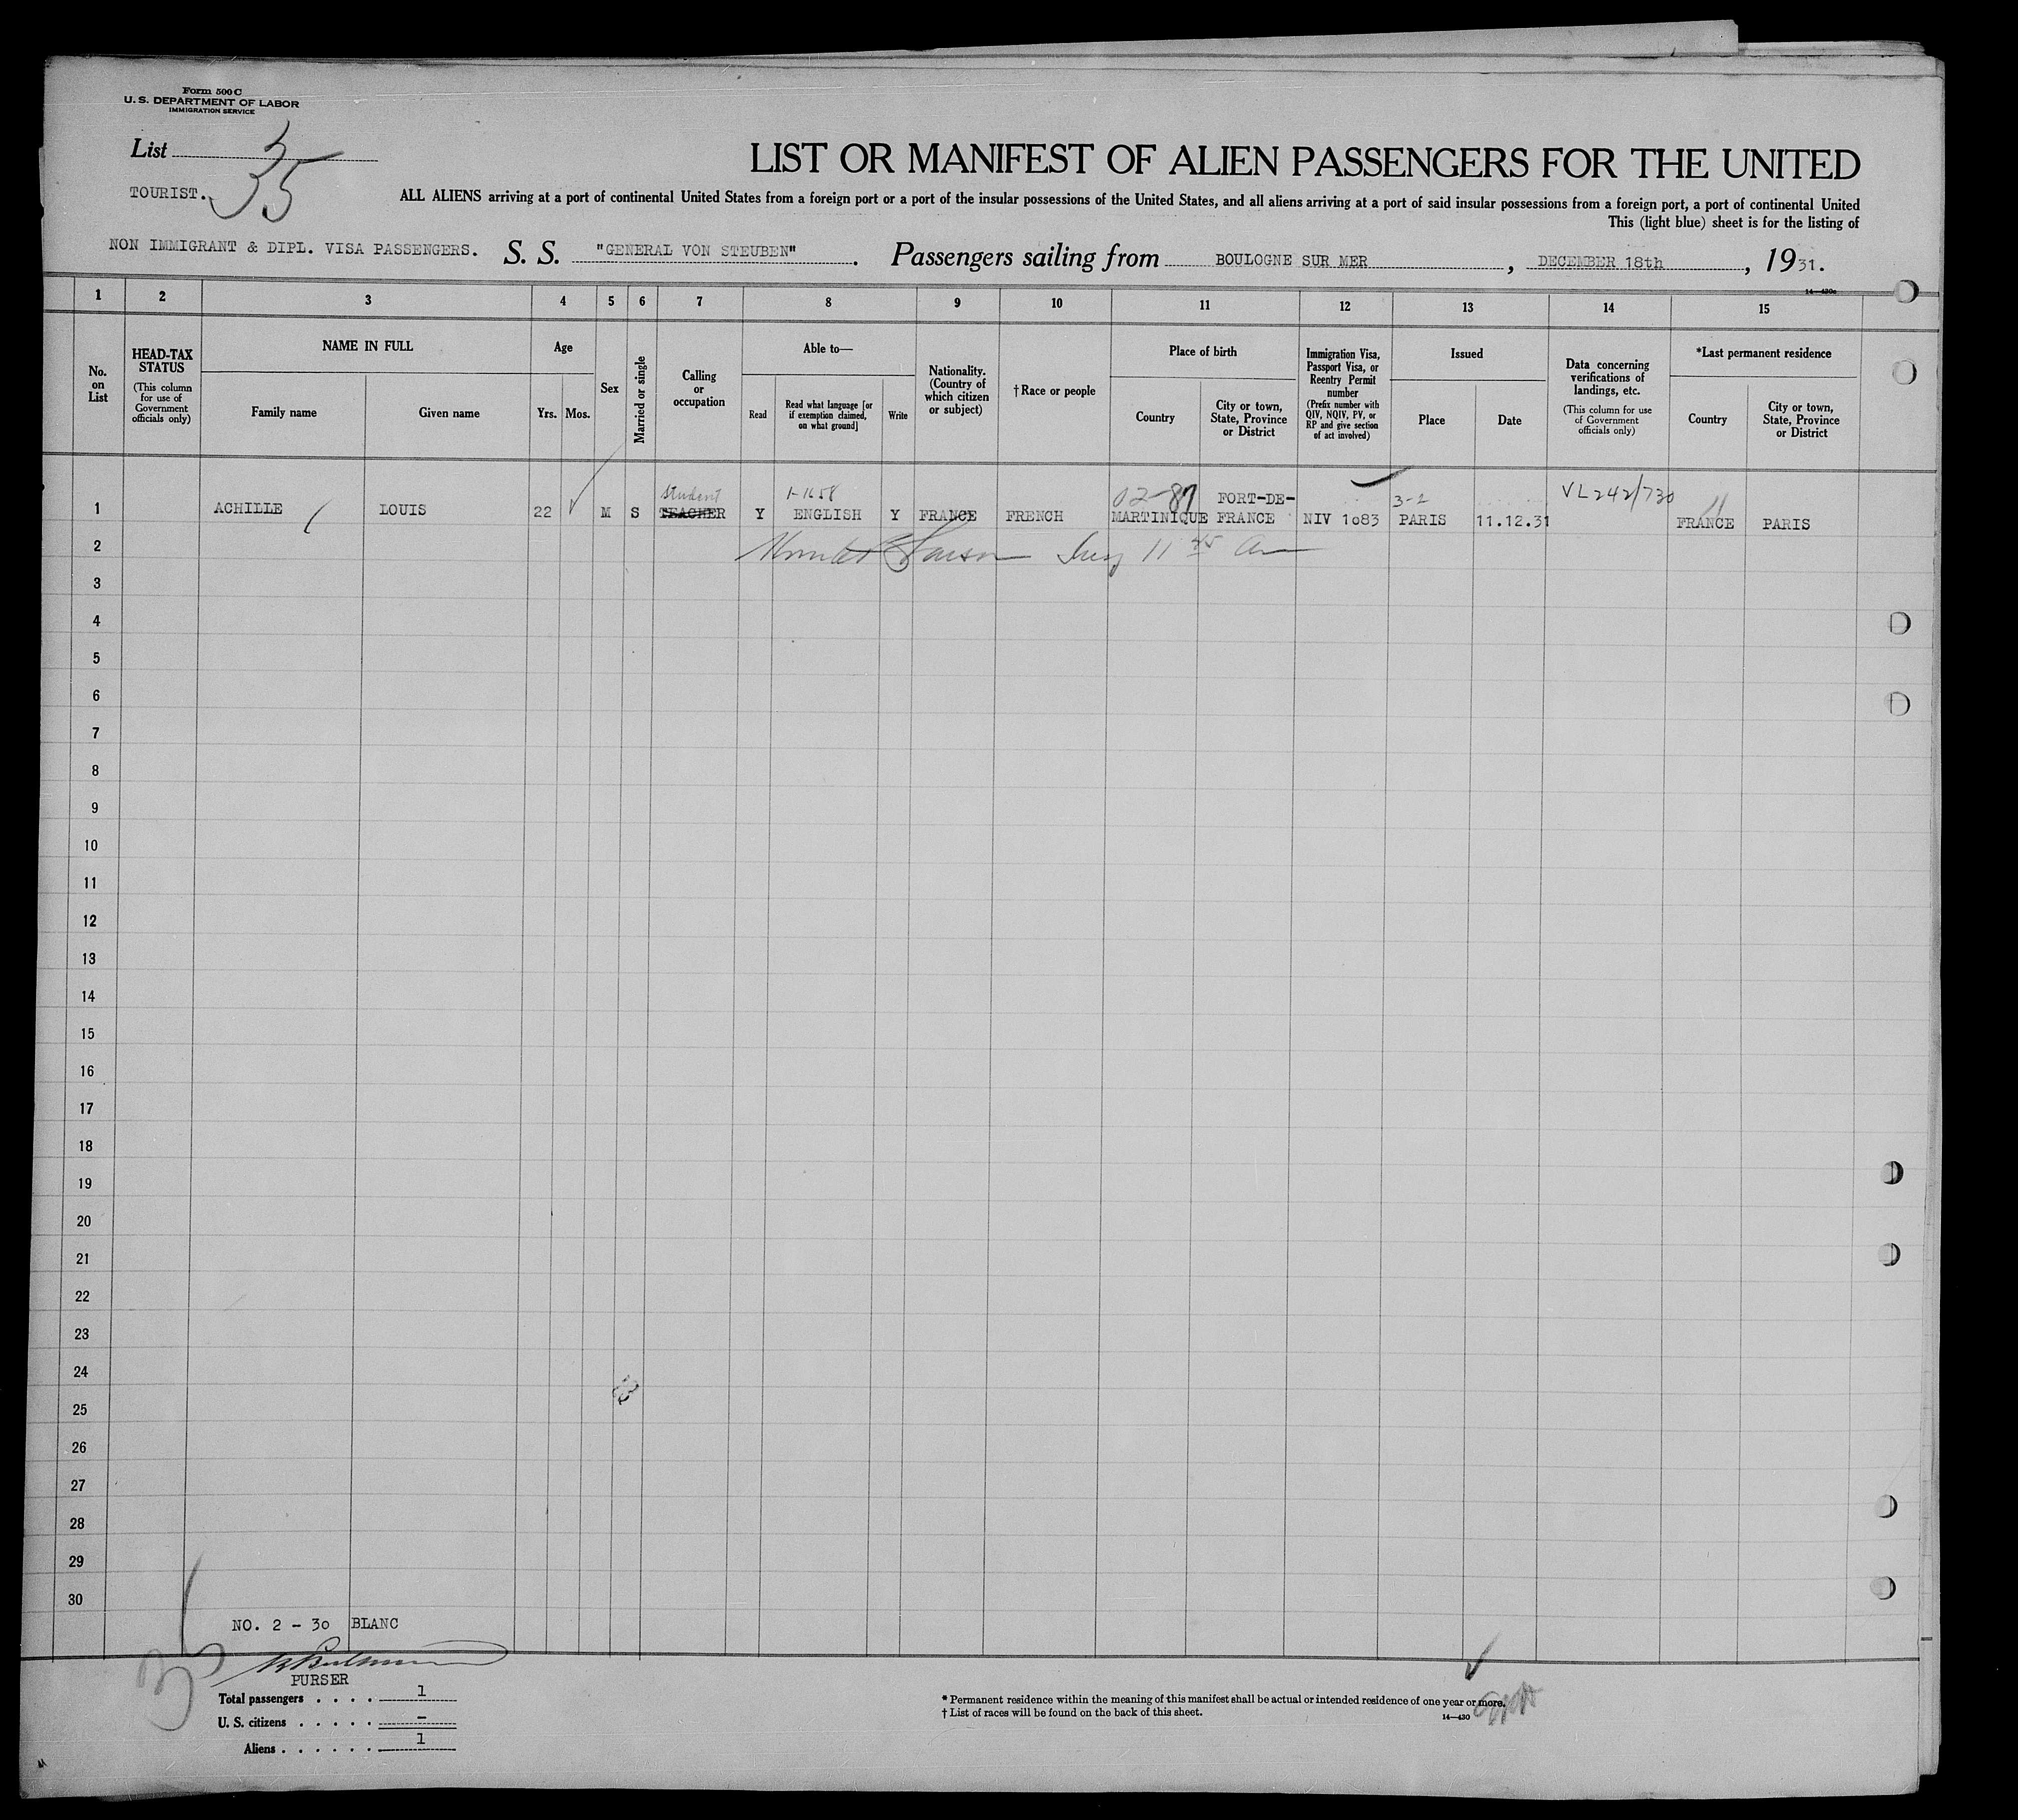 Form 500 C
U. S. DEPARTMENT OF LABOR
IMMIGRATION SERVICE
List 35
TOURIST.
LIST OR MANIFEST OF ALIEN PASSENGERS FOR THE UNITED
ALL ALIENS arriving at a port of continental United States from a foreign port or a port of the insular possessions of the United States, and all aliens arriving at a port of said insular possessions from a foreign port, a port of continental United
This (light blue) sheet is for the listing of
NON IMMIGRANT & DIPL. VISA PASSENGERS. S. S. "GENERAL VON STEUBEN". Passengers sailing from BOULOGNE SUR MER, DECEMBER 18th, 1931.
1 2 3 4 5 6 7 8 9 10 11 12 13 14 15
No. on List
HEAD-TAX STATUS
(This column for use of Government officials only)
NAME IN FULL
Family name
Given name
Age
Yrs.
Mos.
Sex
Married or single
Calling or occupation
Able to—
Read
Read what language [or if exemption claimed, on what ground]
Write
Nationality. (Country of which citizen or subject)
†Race or people
Place of birth
Country
City or town, State, Province or District
Immigration Visa, Passport Visa, or Reentry Permit number
(Prefix number with QIV, NQIV, PV, or RP and give section of act involved)
Issued
Place
Date
Data concerning verifications of landings, etc.
(This column for use of Government officials only)
*Last permanent residence
Country
City or town, State, Province or District
student 1-1658 02-87 FORT-DE- 3-2 VL 242/730
1 ACHILLE LOUIS 22 M S TEACHER Y ENGLISH Y FRANCE FRENCH MARTINIQUE FRANCE NIV 1083 PARIS 11.12.31 FRANCE PARIS
2 11 45
3
4
5
6
7
8
9
10
11
12
13
14
15
16
17
18
19
20
21
22
23
24
25
26
27
28
29
30
NO. 2 - 30 BLANC
PURSER
Total passengers . . . . 1
U. S. citizens . . . . . –
Aliens . . . . . . 1
35
* Permanent residence within the meaning of this manifest shall be actual or intended residence of one year or more.
† List of races will be found on the back of this sheet.
14—430